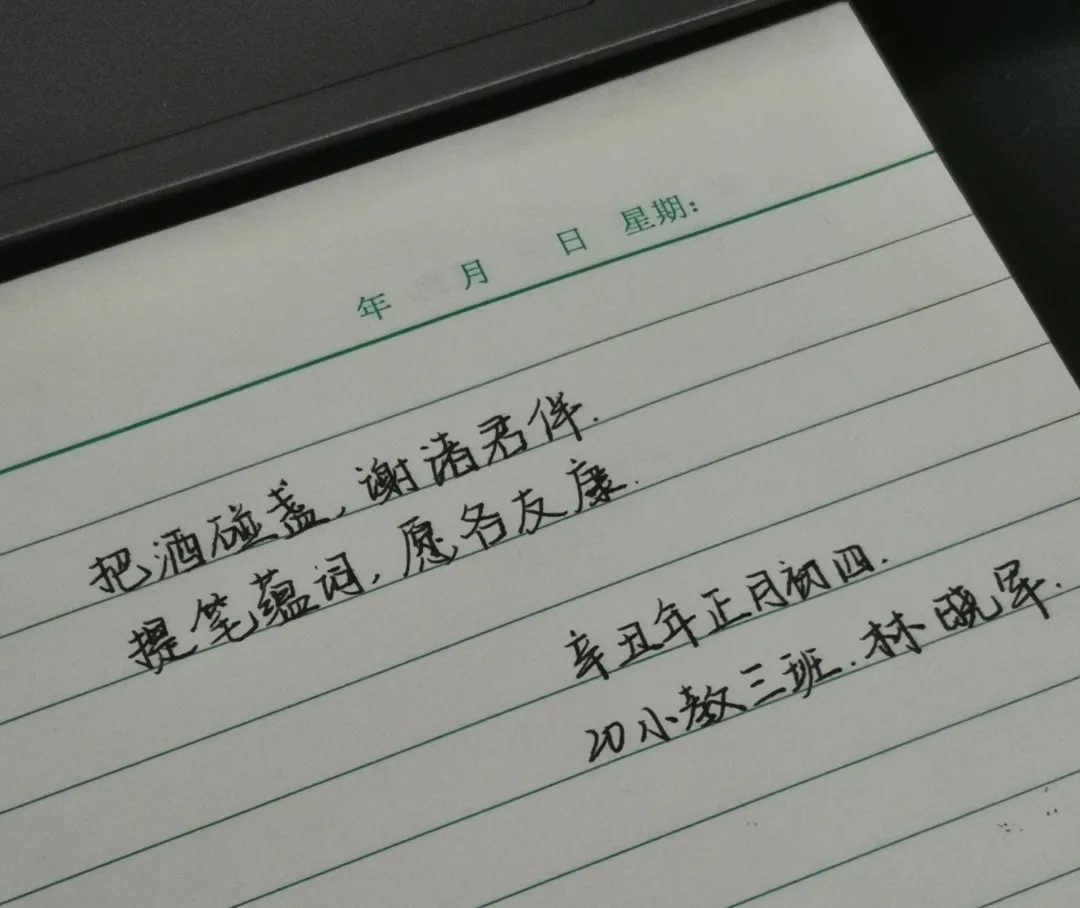 年 月 日 星期:
把酒碰盏,谢渚君伴.
提笔蕴词,愿各友康.
辛丑年正月初四.
20小教三班.林晓军.